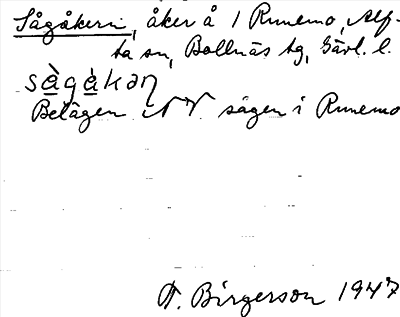 Sågåkern, åker å 1 Runemo, Alf-
ta sn, Bollnäs tg, Gävl. l.
sågåkəɳ
Belägen NV sågen i Runemo
T. Birgerson 1947